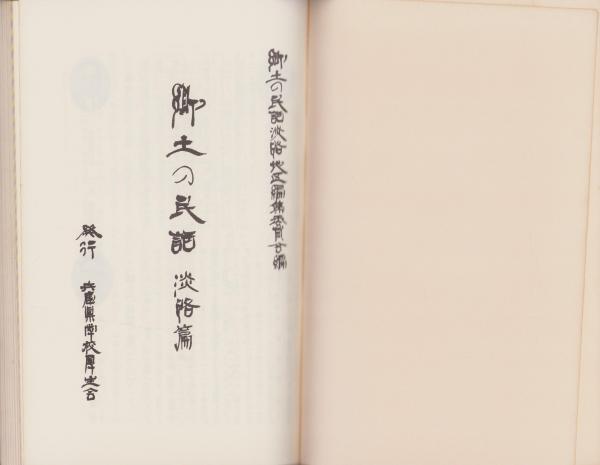 郷土の民話淡路地区編集委員会編
郷土の民話 淡路篇
発行 兵庫県学校厚生会